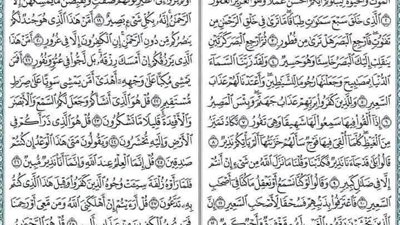 الْمَوْتَ وَالْحَيَوٰةَ لِيَبْلُوَكُمْ أَيُّكُمْ أَحْسَنُ عَمَلًا وَهُوَ الْعَزِيزُ الْغَفُورُ
الَّذِي خَلَقَ سَبْعَ سَمَٰوَٰتٍ طِبَاقًا مَّا تَرَىٰ فِي خَلْقِ الرَّحْمَٰنِ مِن
تَفَٰوُتٍ فَارْجِعِ الْبَصَرَ هَلْ تَرَىٰ مِن فُطُورٍ ثُمَّ ارْجِعِ الْبَصَرَ كَرَّتَيْنِ
يَنقَلِبْ إِلَيْكَ الْبَصَرُ خَاسِئًا وَهُوَ حَسِيرٌ وَلَقَدْ زَيَّنَّا السَّمَاءَ
الدُّنْيَا بِمَصَٰبِيحَ وَجَعَلْنَٰهَا رُجُومًا لِّلشَّيَٰطِينِ وَأَعْتَدْنَا لَهُمْ عَذَابَ
السَّعِيرِ وَلِلَّذِينَ كَفَرُوا بِرَبِّهِمْ عَذَابُ جَهَنَّمَ وَبِئْسَ الْمَصِيرُ
إِذَا أُلْقُوا فِيهَا سَمِعُوا لَهَا شَهِيقًا وَهِيَ تَفُورُ تَكَادُ تَمَيَّزُ
مِنَ الْغَيْظِ كُلَّمَا أُلْقِيَ فِيهَا فَوْجٌ سَأَلَهُمْ خَزَنَتُهَا أَلَمْ يَأْتِكُمْ نَذِيرٌ
قَالُوا بَلَىٰ قَدْ جَاءَنَا نَذِيرٌ فَكَذَّبْنَا وَقُلْنَا مَا نَزَّلَ اللَّهُ مِن شَيْءٍ إِنْ أَنتُمْ
إِلَّا فِي ضَلَٰلٍ كَبِيرٍ وَقَالُوا لَوْ كُنَّا نَسْمَعُ أَوْ نَعْقِلُ مَا كُنَّا فِي أَصْحَٰبِ
السَّعِيرِ فَاعْتَرَفُوا بِذَنبِهِمْ فَسُحْقًا لِّأَصْحَٰبِ السَّعِيرِ
إِنَّ الَّذِينَ يَخْشَوْنَ رَبَّهُم بِالْغَيْبِ لَهُم مَّغْفِرَةٌ وَأَجْرٌ كَبِيرٌ
صَٰفَّٰتٍ وَيَقْبِضْنَ مَا يُمْسِكُهُنَّ إِلَّا
الرَّحْمَٰنُ إِنَّهُ بِكُلِّ شَيْءٍ بَصِيرٌ أَمَّنْ هَٰذَا الَّذِي هُوَ جُندٌ لَّكُمْ
يَنصُرُكُم مِّن دُونِ الرَّحْمَٰنِ إِنِ الْكَٰفِرُونَ إِلَّا فِي غُرُورٍ أَمَّنْ هَٰذَا الَّذِي
يَرْزُقُكُمْ إِنْ أَمْسَكَ رِزْقَهُ بَل لَّجُّوا فِي عُتُوٍّ وَنُفُورٍ أَفَمَن
يَمْشِي مُكِبًّا عَلَىٰ وَجْهِهِ أَهْدَىٰ أَمَّن يَمْشِي سَوِيًّا عَلَىٰ صِرَٰطٍ
مُّسْتَقِيمٍ قُلْ هُوَ الَّذِي أَنشَأَكُمْ وَجَعَلَ لَكُمُ السَّمْعَ وَالْأَبْصَٰرَ
وَالْأَفْئِدَةَ قَلِيلًا مَّا تَشْكُرُونَ قُلْ هُوَ الَّذِي ذَرَأَكُمْ فِي
الْأَرْضِ وَإِلَيْهِ تُحْشَرُونَ وَيَقُولُونَ مَتَىٰ هَٰذَا الْوَعْدُ إِن كُنتُمْ
صَٰدِقِينَ قُلْ إِنَّمَا الْعِلْمُ عِندَ اللَّهِ وَإِنَّمَا أَنَا نَذِيرٌ مُّبِينٌ
فَلَمَّا رَأَوْهُ زُلْفَةً سِيئَتْ وُجُوهُ الَّذِينَ كَفَرُوا وَقِيلَ هَٰذَا الَّذِي كُنتُم
بِهِ تَدَّعُونَ قُلْ أَرَءَيْتُمْ إِنْ أَهْلَكَنِيَ اللَّهُ وَمَن مَّعِيَ أَوْ رَحِمَنَا
فَمَن يُجِيرُ الْكَٰفِرِينَ مِنْ عَذَابٍ أَلِيمٍ قُلْ هُوَ الرَّحْمَٰنُ